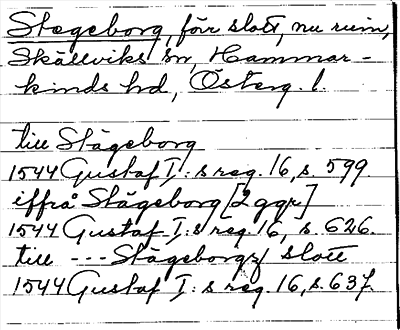 Stegeborg, förr slott, nu ruin,
Skällviks sn, Hammar-
kinds hd, Österg. l.
till Stägeborg
1544 Gustaf I:s reg. 16, s. 599.
iffrå Stägeborg [2 ggr]
1544 Gustaf I:s reg. 16, s. 626.
till --- Stägeborgz slott
1544 Gustaf I:s reg. 16, s. 637.